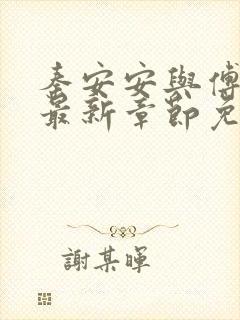 秦安安與傅
最新章節免
謝某暉